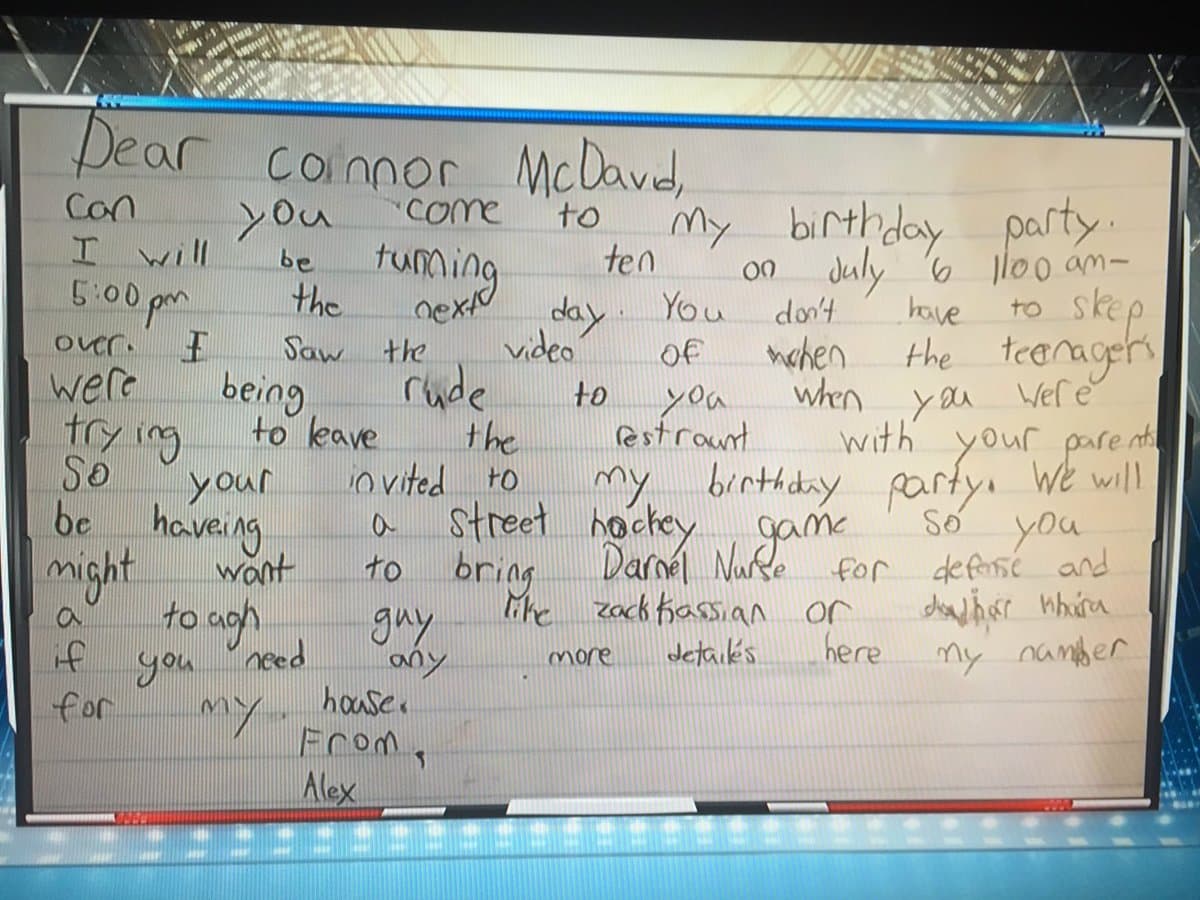 Dear connor McDavid,
can you come to my birthday party.
I will be turning ten on July 6 1100 am-
5:00 pm the next day. You don't have to sleep
over. I Saw the video of when the teenager's
were being rude to you when you were
trying to leave the restraunt with your parents
so your invited to my birthday party. We will
be haveing a street hockey game so you
might want to bring Darnel Nurse for defense and
a tough guy like zack kassian or
if you need any more detailes here my number
for my house.
From,
Alex